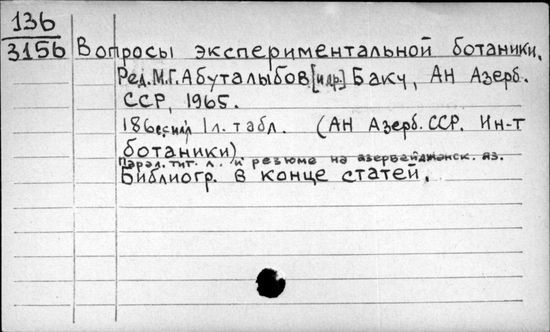 136
3156 Вопросы экспериментальной ботаники.
Ред. М.Г. Абуталыбов [и др.] Баку, Ан Азерб.
ССР, 1965.
186 с. 1 л. табл. (АН Азерб. ССР. Ин-т
ботаники)
Парал. тит. л. и резюме на азербайджанск. яз.
Библиогр. в конце статей.